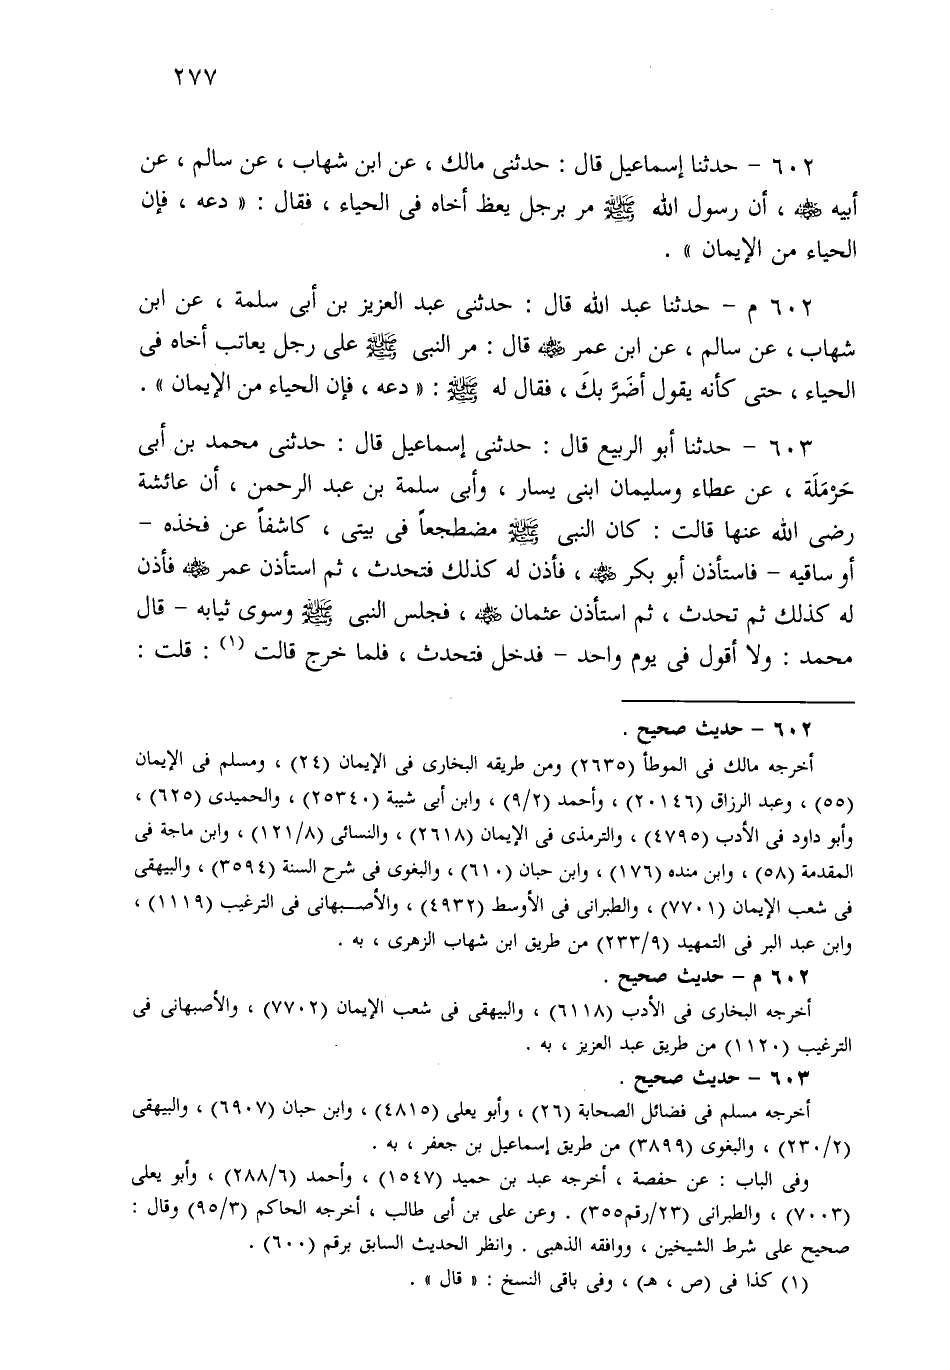 ٢٧٧
٦٠٢ - حدثنا إسماعيل قال : حدثنى مالك ، عن ابن شهاب ، عن سالم ، عن
أبيه رضي الله عنه ، أن رسول الله ﷺ مر برجل يعظ أخاه فى الحياء ، فقال : « دعه ، فإن
الحياء من الإيمان » .
٦٠٢ م - حدثنا عبد الله قال : حدثنى عبد العزيز بن أبى سلمة ، عن ابن
شهاب ، عن سالم ، عن ابن عمر رضي الله عنه قال : مر النبى ﷺ على رجل يعاتب أخاه فى
الحياء ، حتى كأنه يقول أضَرَّ بكَ ، فقال له ﷺ : « دعه ، فإن الحياء من الإيمان » .
٦٠٣ - حدثنا أبو الربيع قال : حدثنى إسماعيل قال : حدثنى محمد بن أبى
حَرْمَلَة ، عن عطاء وسليمان ابنى يسار ، وأبى سلمة بن عبد الرحمن ، أن عائشة
رضى الله عنها قالت : كان النبى ﷺ مضطجعاً فى بيتى ، كاشفاً عن فخذه -
أو ساقيه - فاستأذن أبو بكر رضي الله عنه ، فأذن له كذلك فتحدث ، ثم استأذن عمر رضي الله عنه فأذن
له كذلك ثم تحدث ، ثم استأذن عثمان رضي الله عنه ، فجلس النبى ﷺ وسوى ثيابه - قال
محمد : ولا أقول فى يوم واحد - فدخل فتحدث ، فلما خرج قالت (١) : قلت :
٦٠٢ - حديث صحيح .
أخرجه مالك فى الموطأ (٢٦٣٥) ومن طريقه البخارى فى الإيمان (٢٤) ، ومسلم فى الإيمان
(٥٥) ، وعبد الرزاق (٢٠١٤٦) ، وأحمد (٩/٢) ، وابن أبى شيبة (٢٥٣٤٠) ، والحميدى (٦٢٥) ،
وأبو داود فى الأدب (٤٧٩٥) ، والترمذى فى الإيمان (٢٦١٨) ، والنسائى (١٢١/٨) ، وابن ماجة فى
المقدمة (٥٨) ، وابن منده (١٧٦) ، وابن حبان (٦١٠) ، والبغوى فى شرح السنة (٣٥٩٤) ، والبيهقى
فى شعب الإيمان (٧٧٠١) ، والطبرانى فى الأوسط (٤٩٣٢) ، والأصبهانى فى الترغيب (١١١٩) ،
وابن عبد البر فى التمهيد (٢٣٣/٩) من طريق ابن شهاب الزهرى ، به .
٦٠٢ م - حديث صحيح .
أخرجه البخارى فى الأدب (٦١١٨) ، والبيهقى فى شعب الإيمان (٧٧٠٢) ، والأصبهانى فى
الترغيب (١١٢٠) من طريق عبد العزيز ، به .
٦٠٣ - حديث صحيح .
أخرجه مسلم فى فضائل الصحابة (٢٦) ، وأبو يعلى (٤٨١٥) ، وابن حبان (٦٩٠٧) ، والبيهقى
(٢٣٠/٢) ، والبغوى (٣٨٩٩) من طريق إسماعيل بن جعفر ، به .
وفى الباب : عن حفصة ، أخرجه عبد بن حميد (١٥٤٧) ، وأحمد (٢٨٨/٦) ، وأبو يعلى
(٧٠٠٣) ، والطبرانى (٢٣/رقم٣٥٥) . وعن على بن أبى طالب ، أخرجه الحاكم (٩٥/٣) وقال :
صحيح على شرط الشيخين ، ووافقه الذهبى . وانظر الحديث السابق برقم (٦٠٠) .
(١) كذا فى (ص ، هـ) ، وفى باقى النسخ : « قال » .